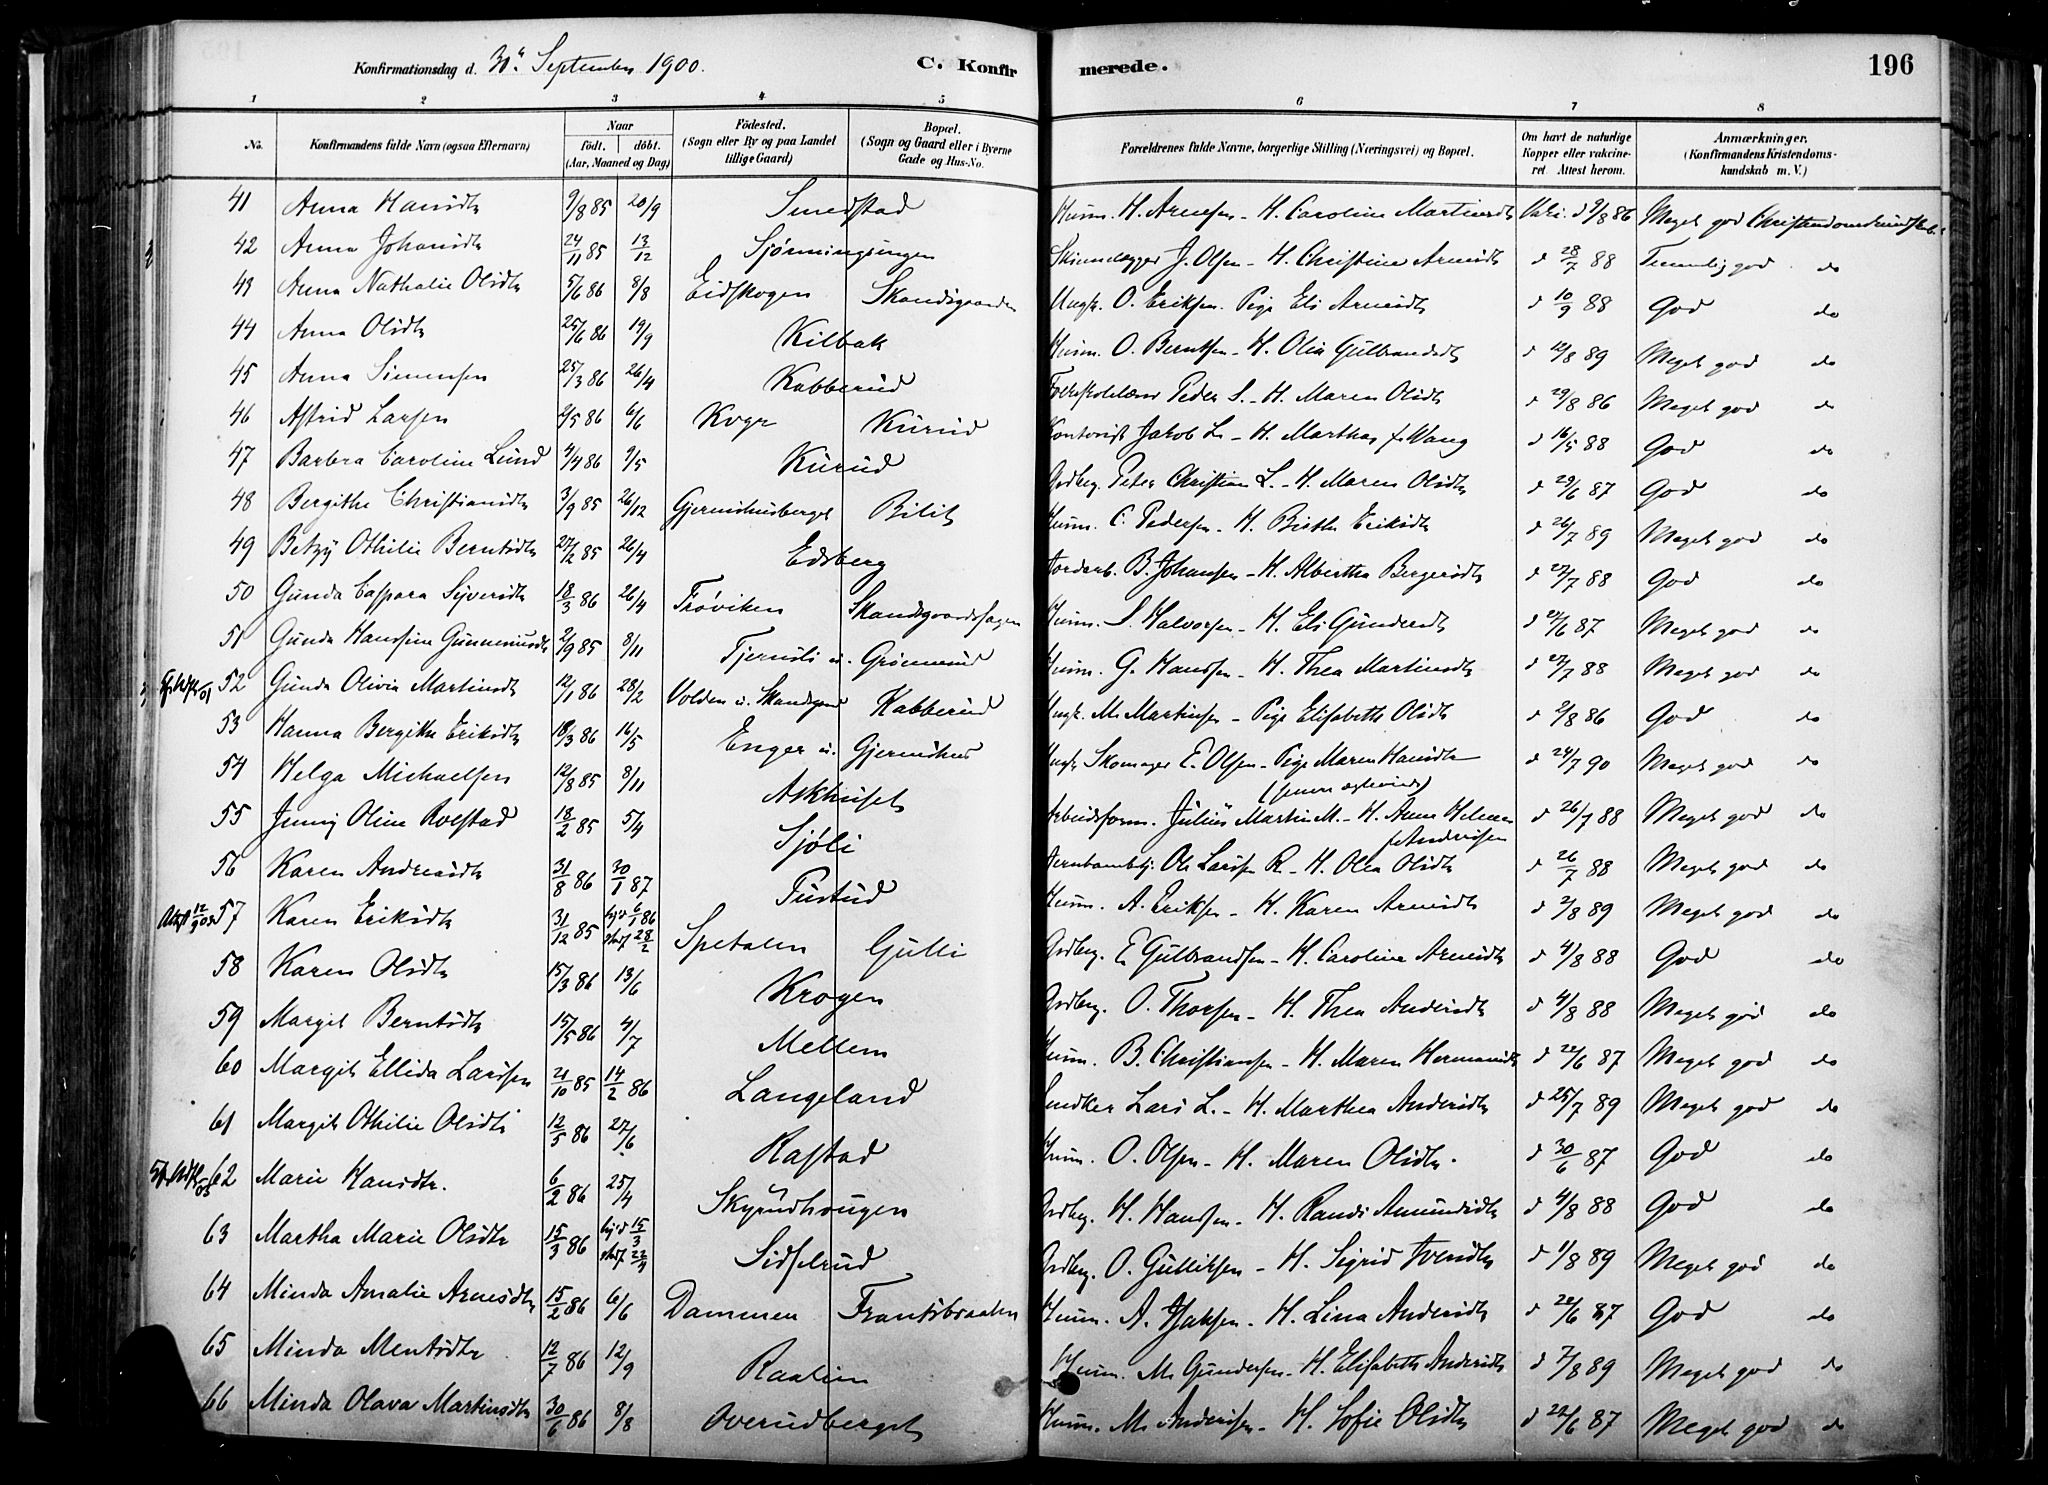 Konfirmationsdag d. September 1900.
C. Konfirmerede.
196
1 2 3 4 5 6 7 8
No. Konfirmandens fulde Navn (ogsaa Efternavn) Naar födt. döbt. (Aar, Maaned og Dag) Födested. (Sogn eller By og paa Landet tillige Gaard) Bopæl. (Sogn og Gaard eller i Byerne Gade og Hus-No. Forældrenes fulde Navne, borgerlige Stilling (Næringsvei) og Bopæl. Om havt de naturlige Kopper eller vakcineret. Attest herom. Anmærkninger. (Konfirmandens Kristendomskundskab m. V.)
41 Anna Hansdtr 9/8 85 20/9 Smedstad Husm. H. Arnesen - H. Caroline Martinsdtr Vak. d 9/8 86 Meget god Christendomskundskab
42 Anna Johansdtr 24/11 85 13/12 J. Olsen - H. Christine Arnesdtr d 28/7 88 Temmelig god do
43 Anna Nathalie Olsdtr 5/6 86 8/8 Eidskogen Skandsgaarden Ungk. O. Eriksen. Pige Eli Arnesdtr d 10/9 88 God do
44 Anna Olsdtr 25/6 86 19/9 Kilbak Husm. O. Berntsen - H. Olia Gulbrandsdtr d 12/8 89 Meget god do
45 Anna Simensen 25/3 86 26/4 Kabberud Peder S. - H. Maren Olsdtr d 29/8 86 Meget god do
46 Astrid Larsen 2/5 86 6/6 Kurud Kontorist Jakob L. - H. Marthea f. Wang d 16/5 88 God do
47 Barbra Caroline Lund 4/4 86 9/5 Kurud Grdbrg. Peter Christian L. - H. Maren Olsdtr d 29/6 87 God do
48 Bergithe Christiansdtr 3/9 85 26/12 Gjermshusberget Bilit Husm. C. Pedersen - H. Birthe Eriksdtr d 26/7 89 Meget god do
49 Betzy Othilie Berntsdtr 27/2 85 26/4 Edsberg Jordarb. B. Johansen - H. Alberthe Bergersdtr d 27/7 88 God do
50 Gunda Caspara Syversdtr 18/3 86 26/4 Frøviken Husm. S. Halvorsen - H. Eli Gundersdtr d 24/6 87 Meget god do
51 Gunda Hansine Gunnerusdtr 2/9 85 8/11 Tjernsli u. Grønnerud Husm. G. Hansen - H. Thea Martinsdtr d 27/7 88 Meget god do
52 Gunda Olivia Martinsdtr 12/1 86 28/2 Volden u. Skandsgrd Kabberud Ungk. M. Martinsen - Pige Elisabeth Olsdtr d 2/8 86 God do
53 Hanna Bergithe Eriksdtr 18/3 86 16/5 Enger u. Gjermshus Ungk. Skomager E. Olsen - Pige Maren Hansdtr d 24/7 90 Meget god do
54 Helga Michaelsen 12/8 85 8/11 Askhuset Arbeidsform. Julius Martin M. - H. Anne Helene f. Andersen d 26/7 88 Meget god do
55 Jenny Oline Rolstad 18/2 85 5/4 Sjøli Ole Larsen R. - H. Olea Olsdtr d 26/7 88 Meget god do
56 Karen Andreasdtr 31/8 86 30/1 87 Tustud Husm. A. Eriksen - H. Karen Arnesdtr d 2/8 89 Meget god do
57 Karen Eriksdtr 31/12 85 hjd 6/1 86 stadf 28/2 Spetalen Gulli Grdbrg. E Gulbrandsen - H. Caroline Arnesdtr d 4/8 88 God do
58 Karen Olsdtr 15/3 86 13/6 Krogen Grdbrg. O. Thorsen - H. Thea Andersdtr d 4/8 88 Meget god do
59 Margit Berntsdtr 15/5 86 4/7 Mellem Husm. B. Christiansen - H. Maren Hermansdtr d 22/6 87 Meget god do
60 Margit Ellida Larsen 21/10 85 14/2 86 Langeland Snedker Lars L. - H. Marthea Andersdtr d 25/7 89 Meget god do
61 Margit Othilie Olsdtr 12/5 86 27/6 Rastad Husm. O. Olsen - H. Maren Olsdtr. d 30/6 87 God do
62 Marie Hansdtr. 6/2 86 25/4 Skyrudhougen Grdbrg. H. Hansen - H. Randi Amundsdtr d 4/8 88 God do
63 Martha Marie Olsdtr 15/3 86 hjd 15/3 stadf 22/4 Sidselrud Grdbrg. O. Gulliksen - H. Sigrid Iversdtr d 1/8 89 Meget god do
64 Minda Amalie Arnesdtr 15/2 86 6/6 Dammen Frantsbraaten Husm. A. Isaksen - H. Lina Andersdtr d 22/6 87 God do
65 Minda Mentsdtr 12/7 86 12/9 Raalien Husm. M. Gundersen - H. Elisabeth Andersdtr d 7/8 89 Meget god do
66 Minda Olava Martinsdtr 30/6 86 8/8 Overudberget Husm. M. Andersen - H. Sofie Olsdtr d 22/6 87 Meget god do